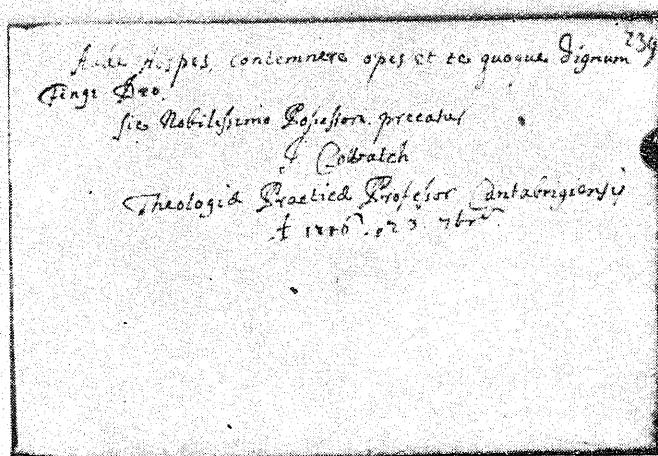 239
Aude Hospes contemnere opes et te quoque dignum
Finge Deo.
sic Nobilissimo Possessori precatur
J Colbatch
Theologiæ Practicæ Professor Cantabrigiensis
23 7br